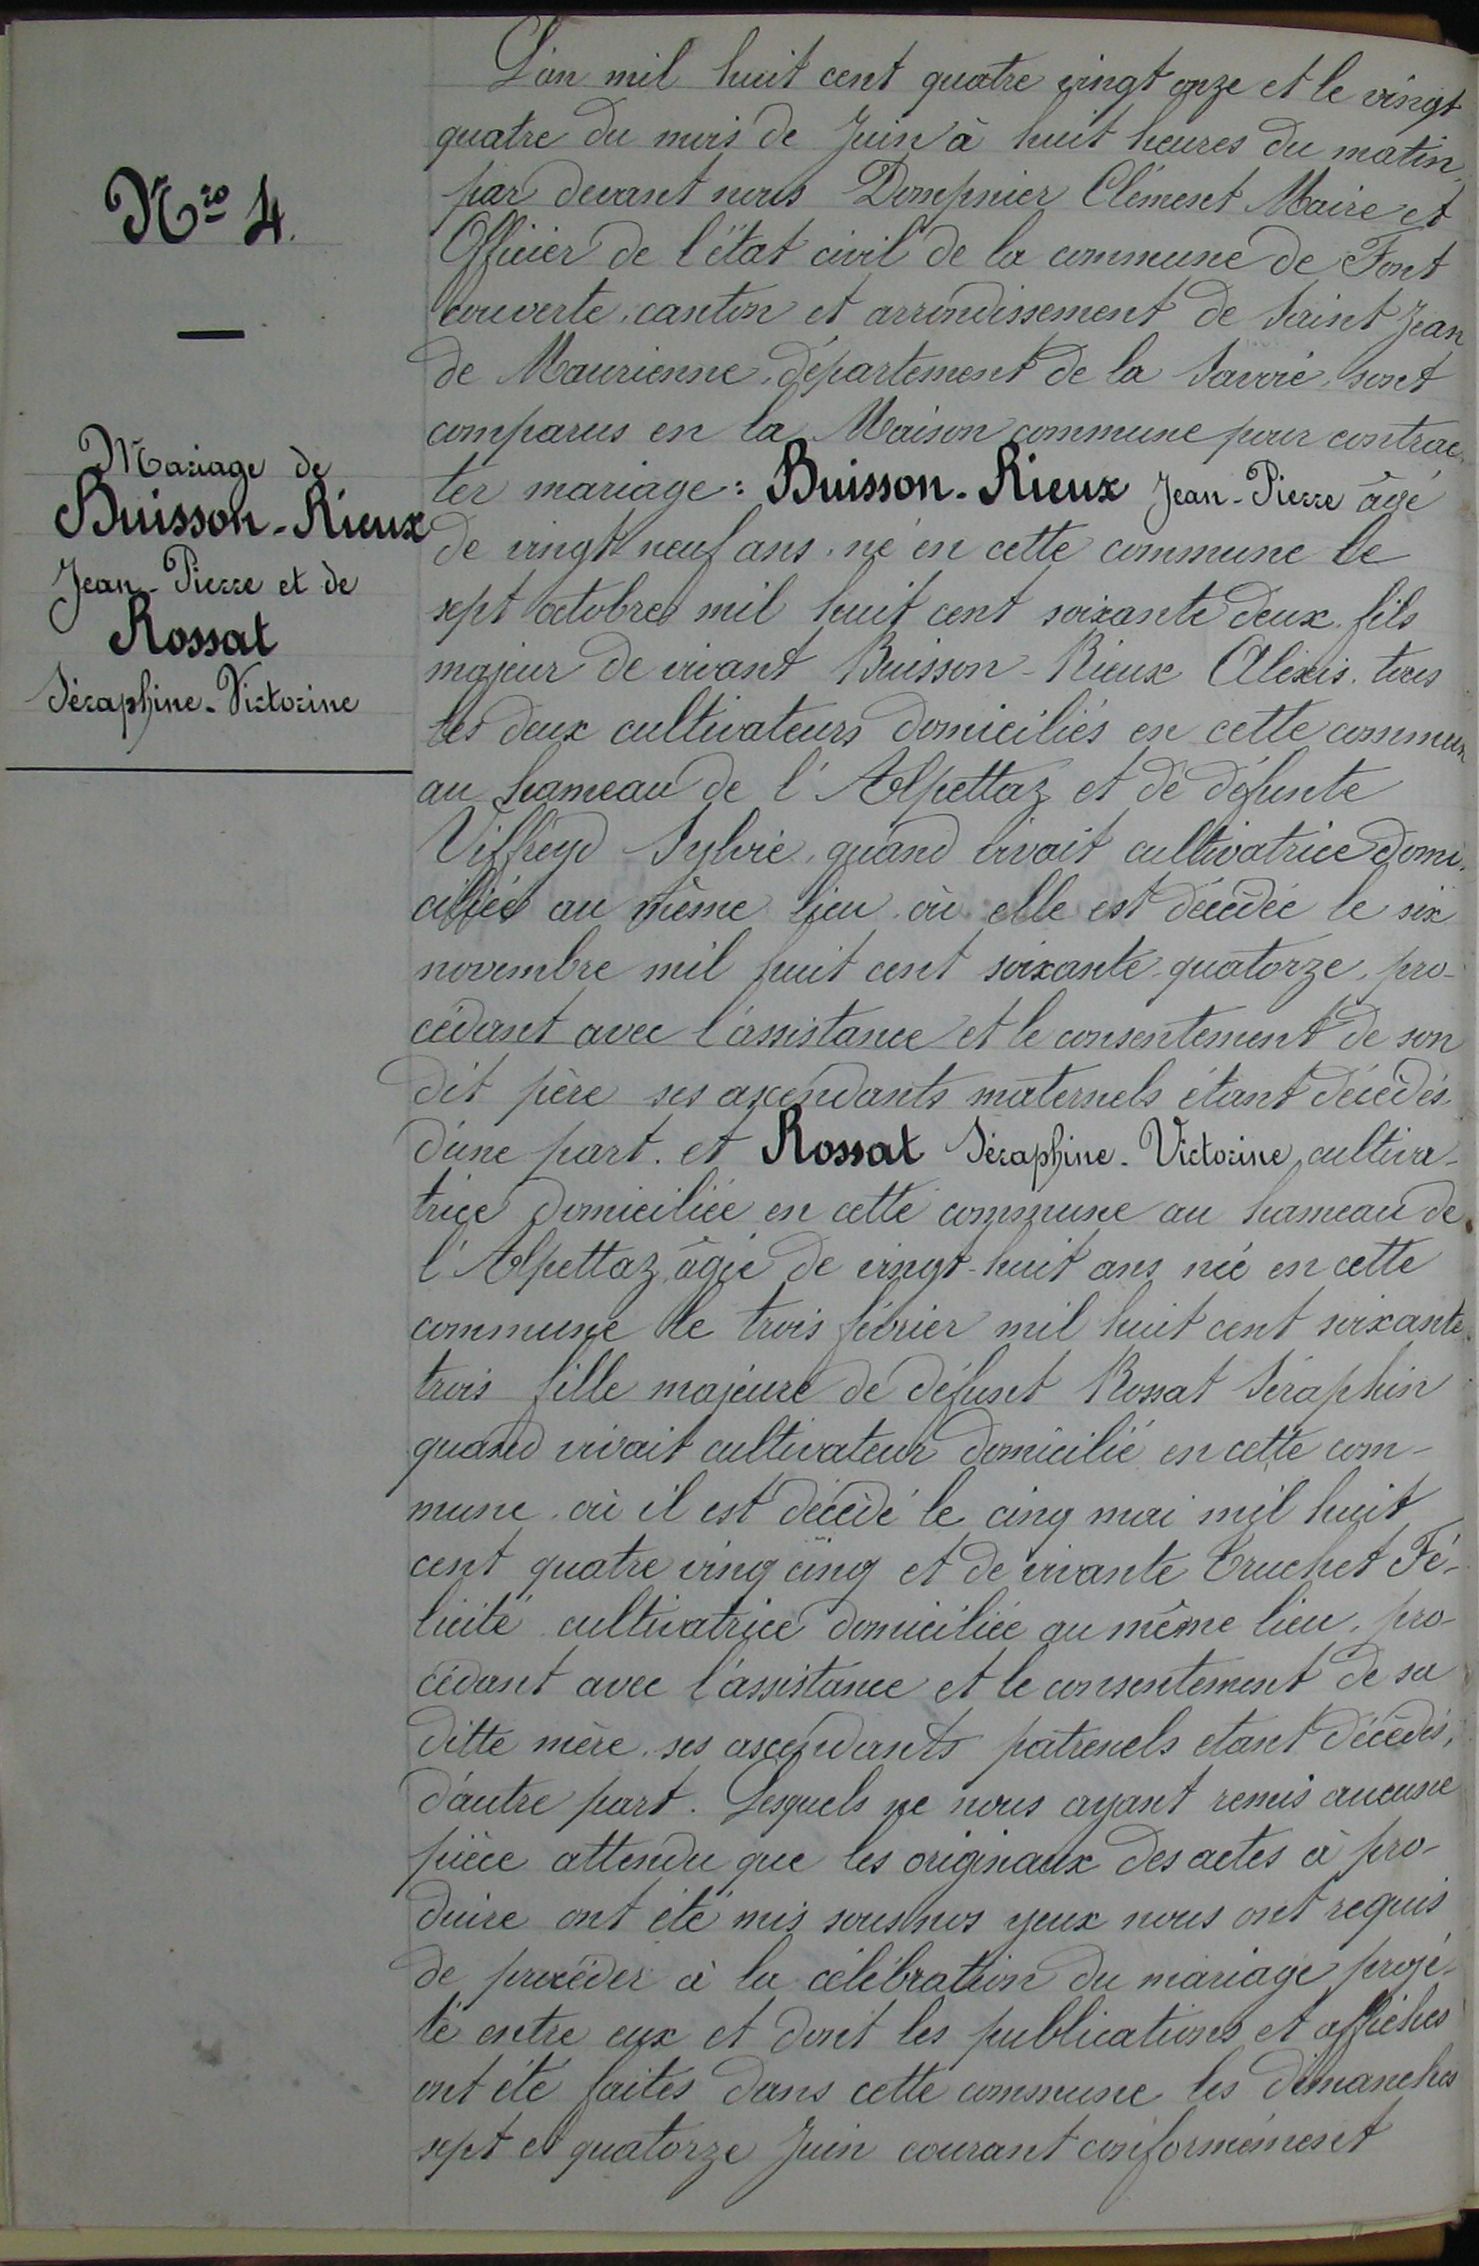 Nro 4.
Mariage de
Buisson-Rieux
Jean-Pierre et de
Rossat
Séraphine-Victorine
L'an mil huit cent quatre vingt onze et le vingt
quatre du mois de Juin à huit heures du matin,
par devant nous Dompnier Clément Maire et
Officier de l'état civil de la commune de Font
couverte, canton et arrondissement de Saint Jean
de Maurienne, département de la Savoie, sont
comparus en la Maison commune pour contrac-
ter mariage : Buisson-Rieux Jean-Pierre âgé
de vingt neuf ans, né en cette commune le
sept octobre mil huit cent soixante deux, fils
majeur de vivant Buisson-Rieux Alexis, tous
les deux cultivateurs domiciliés en cette commun
au hameau de l'Alpettaz et de défunte
Viffreyd Sylvie, quand vivait cultivatrice domi-
ciliée au même lieu où elle est décèdée le six
novembre mil huit cent soixante-quatorze, pro-
cédant avec l'assistance et le consentement de son
dit père ses ascendants maternels étant décèdés
d'une part. et Rossat Séraphine-Victorine, cultiva-
trice domiciliée en cette commune au hameau de
l'Alpettaz, âgée de vingt-huit ans née en cette
commune le trois février mil huit cent soixante
trois fille majeure de défunt Rossat Séraphin
quand vivait cultivateur domicilié en cette com-
mune, où il est décèdé le cinq mai mil huit
cent quatre ving cinq et de vivante Truchet Fé-
licité cultivatrice domiciliée au même lieu, pro-
cédant avec l'assistance et le consentement de sa
ditte mère, ses ascendants patrenels etant décèdés,
d'autre part. Lesquels ne nous ayant remis aucune
pièce attendu que les originaux des actes à pro-
duire ont été mis sous nos yeux nous ont requis
de procéder à la célébration du mariage projé-
té entre eux et dont les publications et affiches
ont été faites dans cette commune les dimanches
sept et quatorze Juin courant conformément